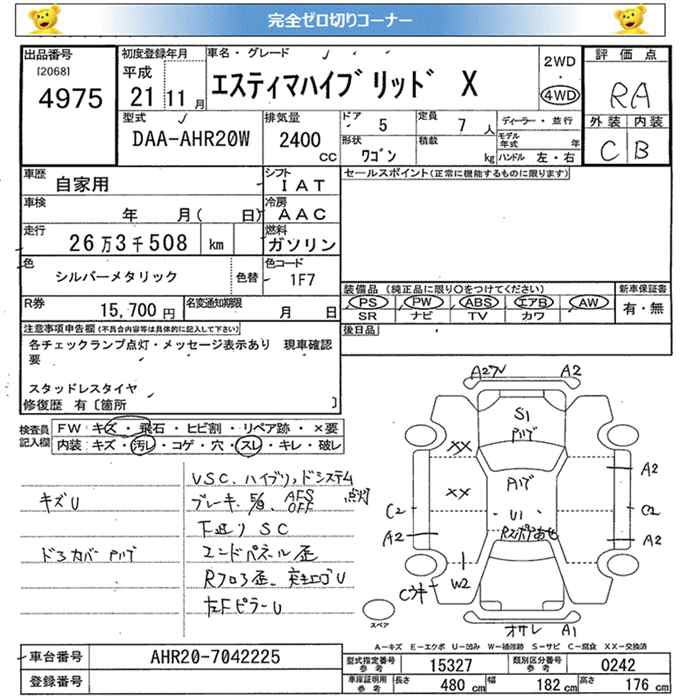 完全ゼロ切りコーナー
出品番号
[2068]
4975
初度登録年月
平成
21 11月
車名・グレード
エスティマハイブリッド X
2WD
・
4WD
評価点
RA
外装 内装
C B
型式
DAA-AHR20W
排気量
2400
CC
ドア 5
定員 7人
ディーラー・並行
モデル年式 年
形状 ワゴン
積載 kg
ハンドル 左・右
車歴
自家用
シフト
IAT
セールスポイント(正常に機能するものに限ります)
車検 年 月( 日)
冷房
AAC
走行
26万3千508 km
燃料
ガソリン
色
シルバーメタリック
色替
色コード
1F7
装備品 (純正品に限り〇をつけてください)
新車保証書
PS PW ABS エアB AW
有・無
SR ナビ TV カワ
R券
15,700円
名変通知期限
月 日
後日品
注意事項申告欄(不具合内容等は具体的に記入して下さい)
各チェックランプ点灯・メッセージ表示あり 現車確認
要
スタッドレスタイヤ
修復歴 有〔箇所 〕
検査員記入欄
FW キズ・飛石・ヒビ割・リペア跡・×要
内装 キズ・汚レ・コゲ・穴・スレ・キレ・破レ
VSC、ハイブリッドシステム
キズU
ブレーキ、 AFS OFF 点灯
下廻り SC
ドラカバー
エンドパネル歪
Rフロア歪、 U
左FピラーU
A2 A2
S1
XX
XX
A2
C2
U1
C2
A2
A2
W2
スペア
オサレ A1
A=キズ E=エクボ U=凹み W=補修跡 S=サビ C=腐食 XX=交換済
車台番号
AHR20-7042225
登録番号
型式指定番号 参考 15327
類別区分番号 参考 0242
車庫証明用 参考 長さ 480cm 幅 182cm 高さ 176cm